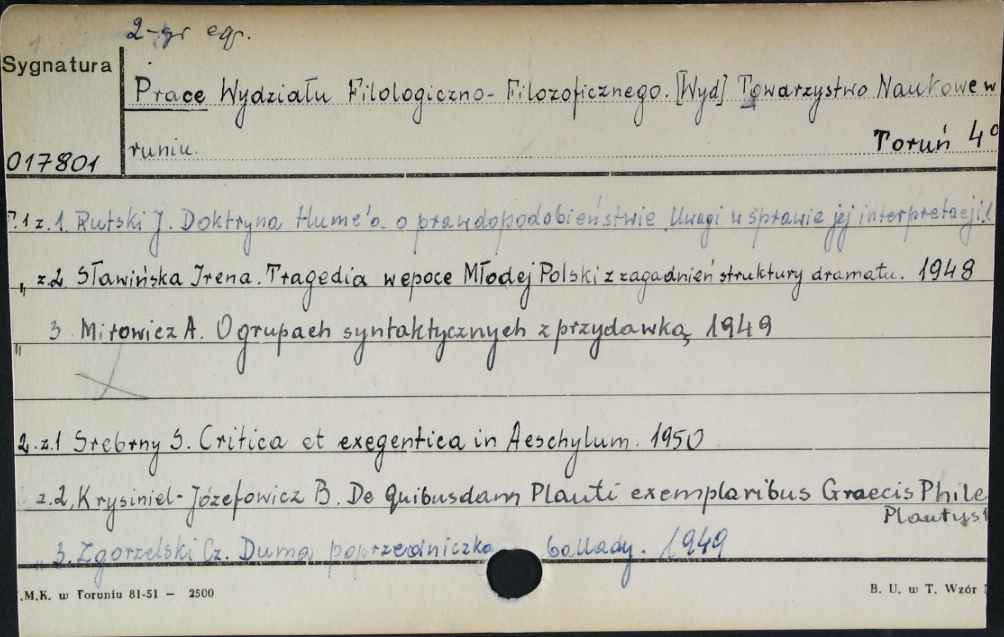 2-gi egz.
Sygnatura
Prace Wydziału Filologiczno-Filozoficznego. [Wyd] Towarzystwo Naukowe w
runiu.
Toruń 4°
017801
T.1 z.1. Rutski J. Doktryna Hume'a o prawdopodobieństwie. Uwagi w sprawie jej interpretacji.
" z.2. Sławińska Irena. Tragedia w epoce Młodej Polski z zagadnień struktury dramatu. 1948
" 3. Mirowicz A. O grupach syntaktycznych z przydawką 1949
2. z.1 Srebrny S. Critica et exegentica in Aeschylum. 1950
z.2. Krysiniel-Józefowicz B. De quibusdam Plauti exemplaribus Graecis Phile
Plautyst
" 3. Zgorzelski Cz. Duma poprzedniczka ballady. 1949
.M.K. w Toruniu 81-51 — 2500
B. U. w T. Wzór